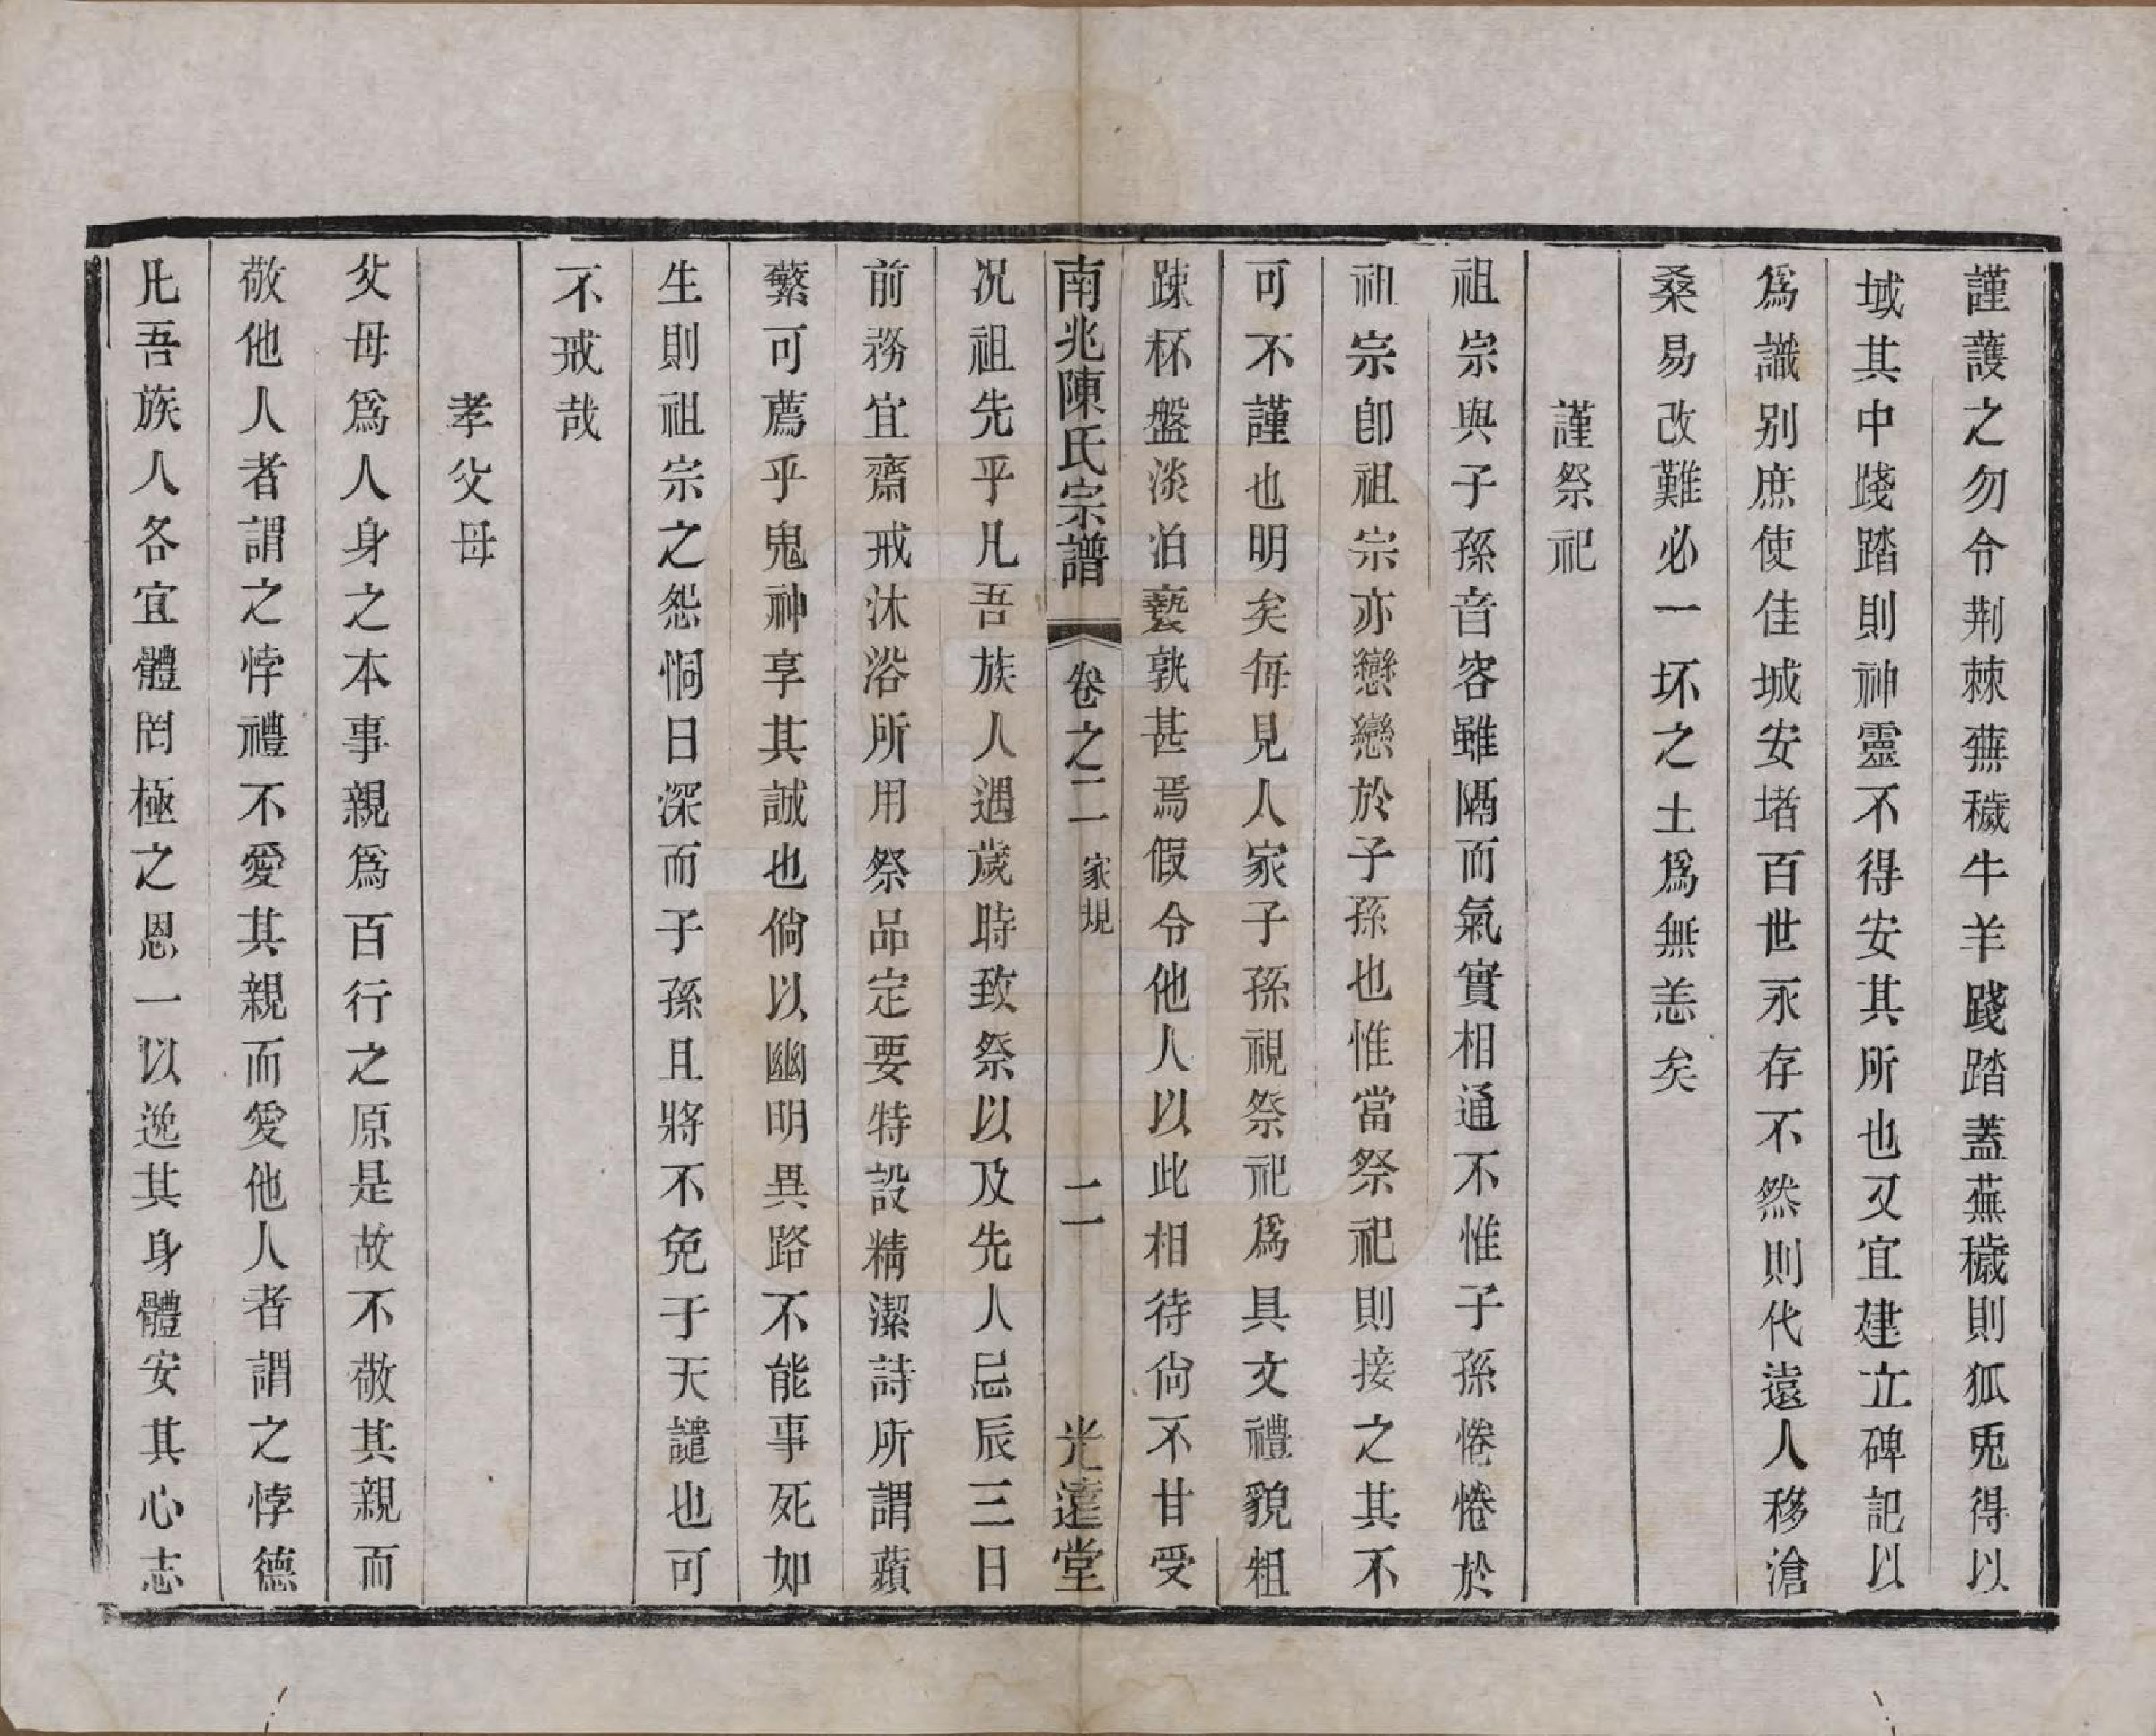 謹護之勿令荆棘蕪穢牛羊踐踏蓋蕪穢則狐兎得以
域其中踐踏則神靈不得安其所也又宜建立碑記以
爲識别庶使佳城安堵百世永存不然則代遠人移滄
桑易改難必一坏之土爲無恙矣
謹祭祀
祖宗與子孫音容雖隔而氣實相通不惟子孫惓惓於
祖宗卽祖宗亦戀戀於子孫也惟當祭祀則接之其不
可不謹也明矣每見人家子孫視祭祀爲具文禮貌粗
踈杯盤淡泊褻孰甚焉假令他人以此相待尙不甘受
南兆陳氏宗譜 卷之二 家規 二 光遠堂
况祖先乎凡吾族人遇歲時致祭以及先人忌辰三日
前務宜齋戒沐浴所用祭品定要特設精潔詩所謂蘋
蘩可薦乎鬼神享其誠也倘以幽明異路不能事死如
生則祖宗之怨恫日深而子孫且將不免于天譴也可
不戒哉
孝父母
父母爲人身之本事親爲百行之原是故不敬其親而
敬他人者謂之悖禮不愛其親而愛他人者謂之悖德
凡吾族人各宜體罔極之恩一以逸其身體安其心志